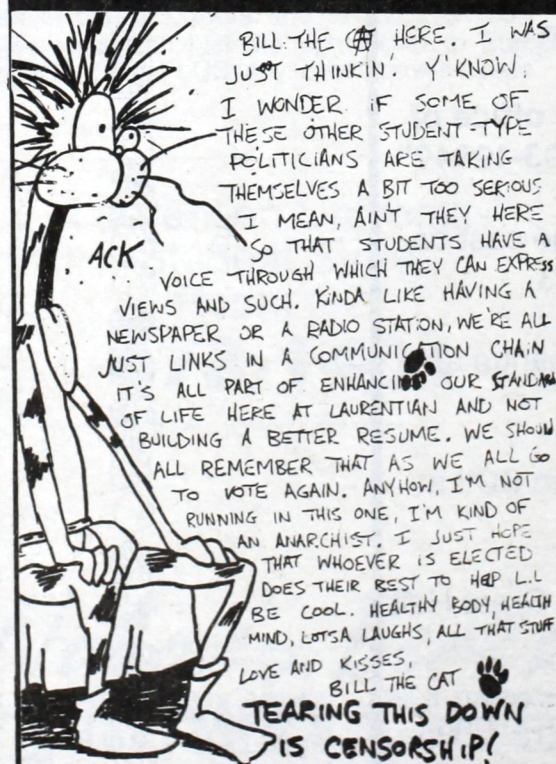 BILL THE CAT HERE. I WAS
JUST THINKIN'. Y'KNOW.
I WONDER IF SOME OF
THESE OTHER STUDENT-TYPE
POLITICIANS ARE TAKING
THEMSELVES A BIT TOO SERIOUS
I MEAN, AIN'T THEY HERE
SO THAT STUDENTS HAVE A
ACK
VOICE THROUGH WHICH THEY CAN EXPRESS
VIEWS AND SUCH. KINDA LIKE HAVING A
NEWSPAPER OR A RADIO STATION, WE'RE ALL
JUST LINKS IN A COMMUNICATION CHAIN
IT'S ALL PART OF ENHANCING OUR STANDARD
OF LIFE HERE AT LAURENTIAN AND NOT
BUILDING A BETTER RESUME. WE SHOULD
ALL REMEMBER THAT AS WE ALL GO
TO VOTE AGAIN. ANYHOW, I'M NOT
RUNNING IN THIS ONE, I'M KIND OF
AN ANARCHIST. I JUST HOPE
THAT WHOEVER IS ELECTED
DOES THEIR BEST TO HELP L.U
BE COOL. HEALTHY BODY, HEALTH
MIND, LOTSA LAUGHS, ALL THAT STUFF
LOVE AND KISSES,
BILL THE CAT
TEARING THIS DOWN
IS CENSORSHIP!